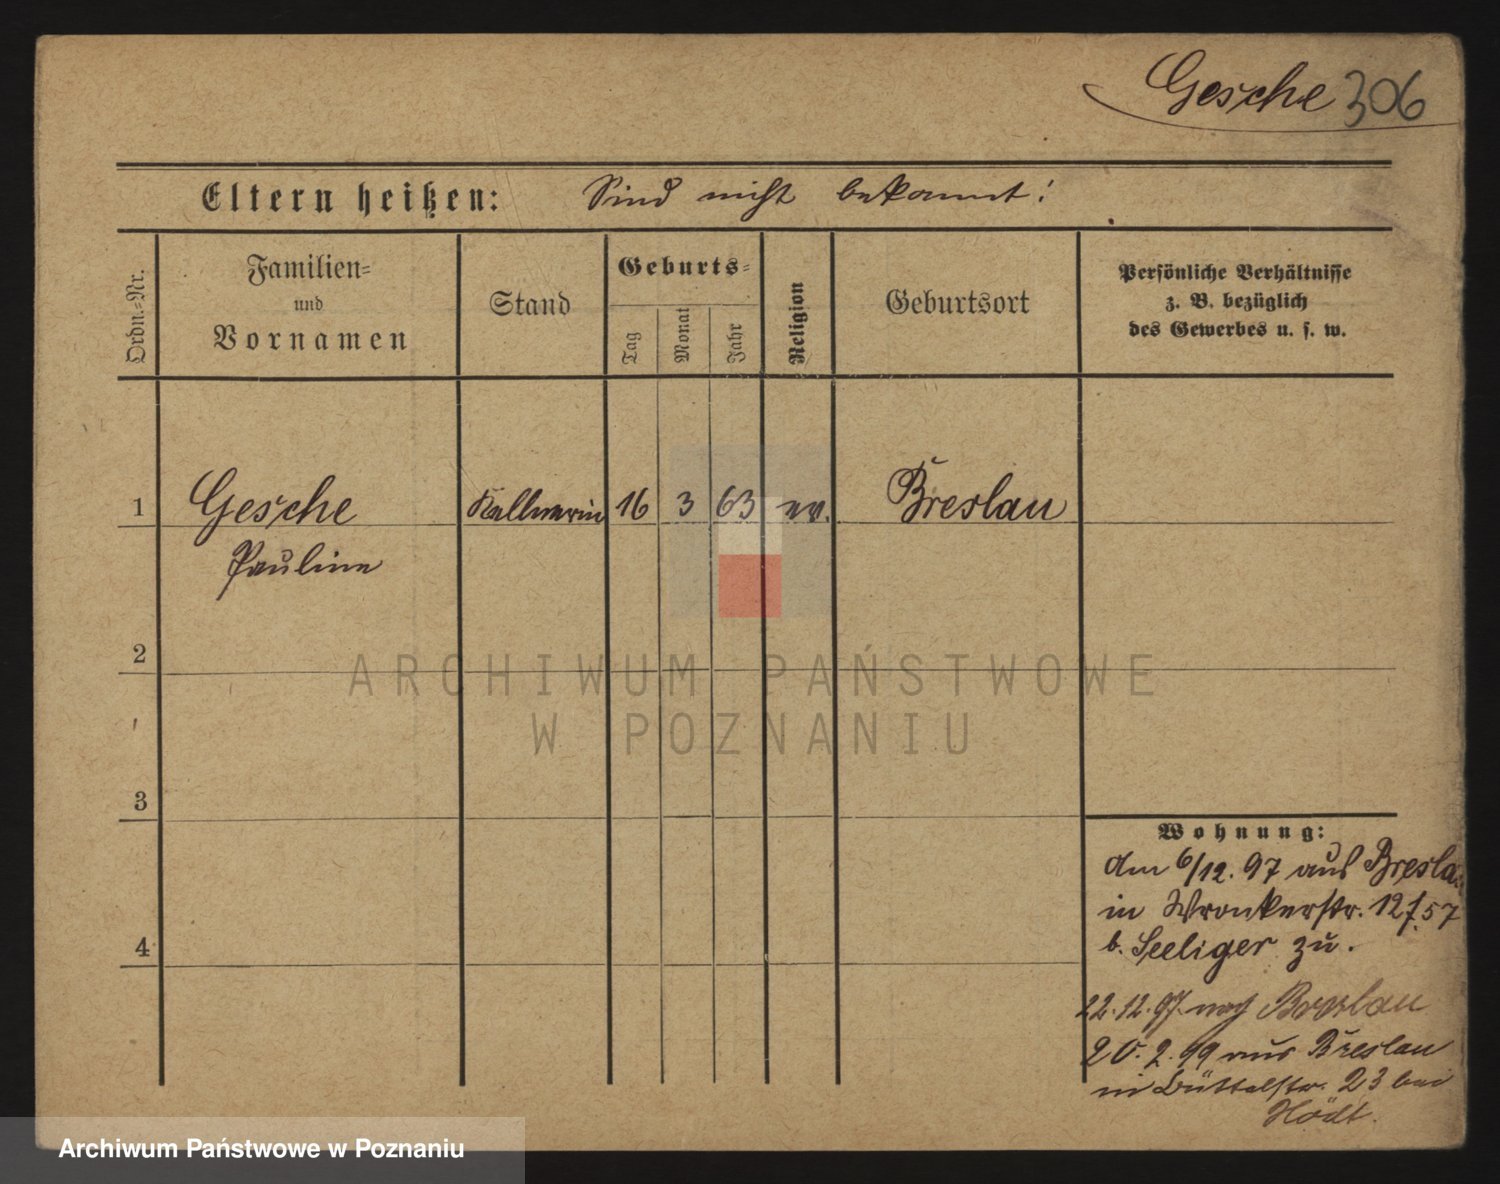 Gesche 306
Eltern heißen: Sind nicht bekannt!
Ordn.-Nr.
Familien-
und
Vornamen
Stand
Geburts-
Tag
Monat
Jahr
Religion
Geburtsort
Persönliche Verhältnisse
z. B. bezüglich
des Gewerbes u. s. w.
1 Gesche Kellnerin 16 3 63 ev. Breslau
Pauline
2
ARCHIWUM PAŃSTWOWE
W POZNANIU
3
Wohnung:
Am 6/12. 97 aus Bresla
in Wronkerstr. 12 f. 57
b. Seeliger zu.
22.12.97. nach Breslau
20. 2. 99 aus Breslau
in Büttelstr. 23 bei
Hödt.
4
Archiwum Państwowe w Poznaniu